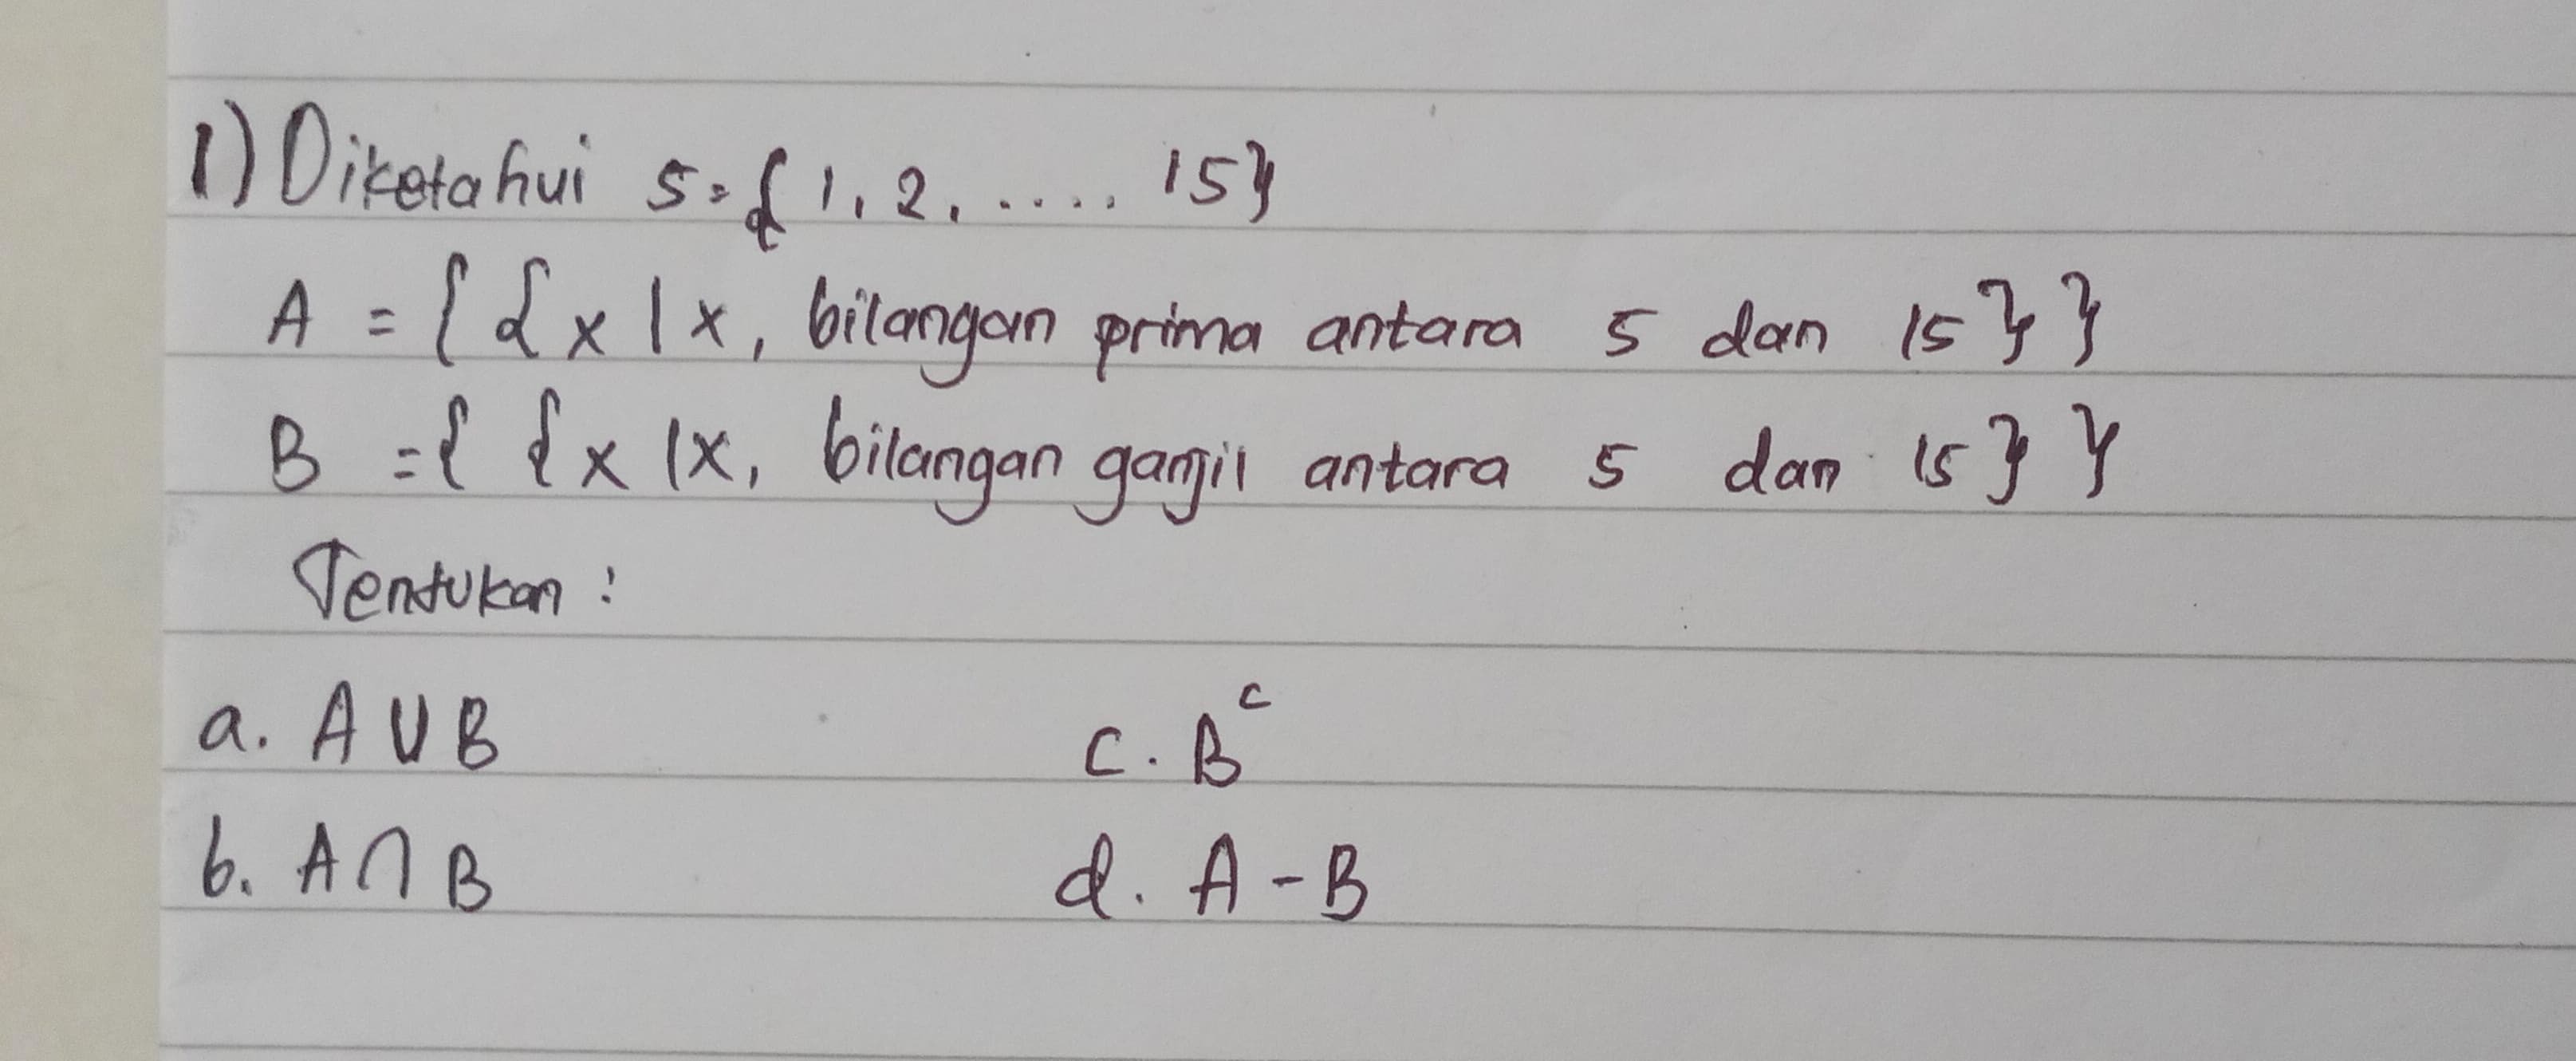 1) Diketahui S = { 1, 2, ..... 15}
A = { {x | x, bilangan prima antara 5 dan 15} }
B = { {x | x, bilangan ganjil antara 5 dan 15} }
Tentukan :
a. A U B c. B^c
b. A ∩ B d. A - B